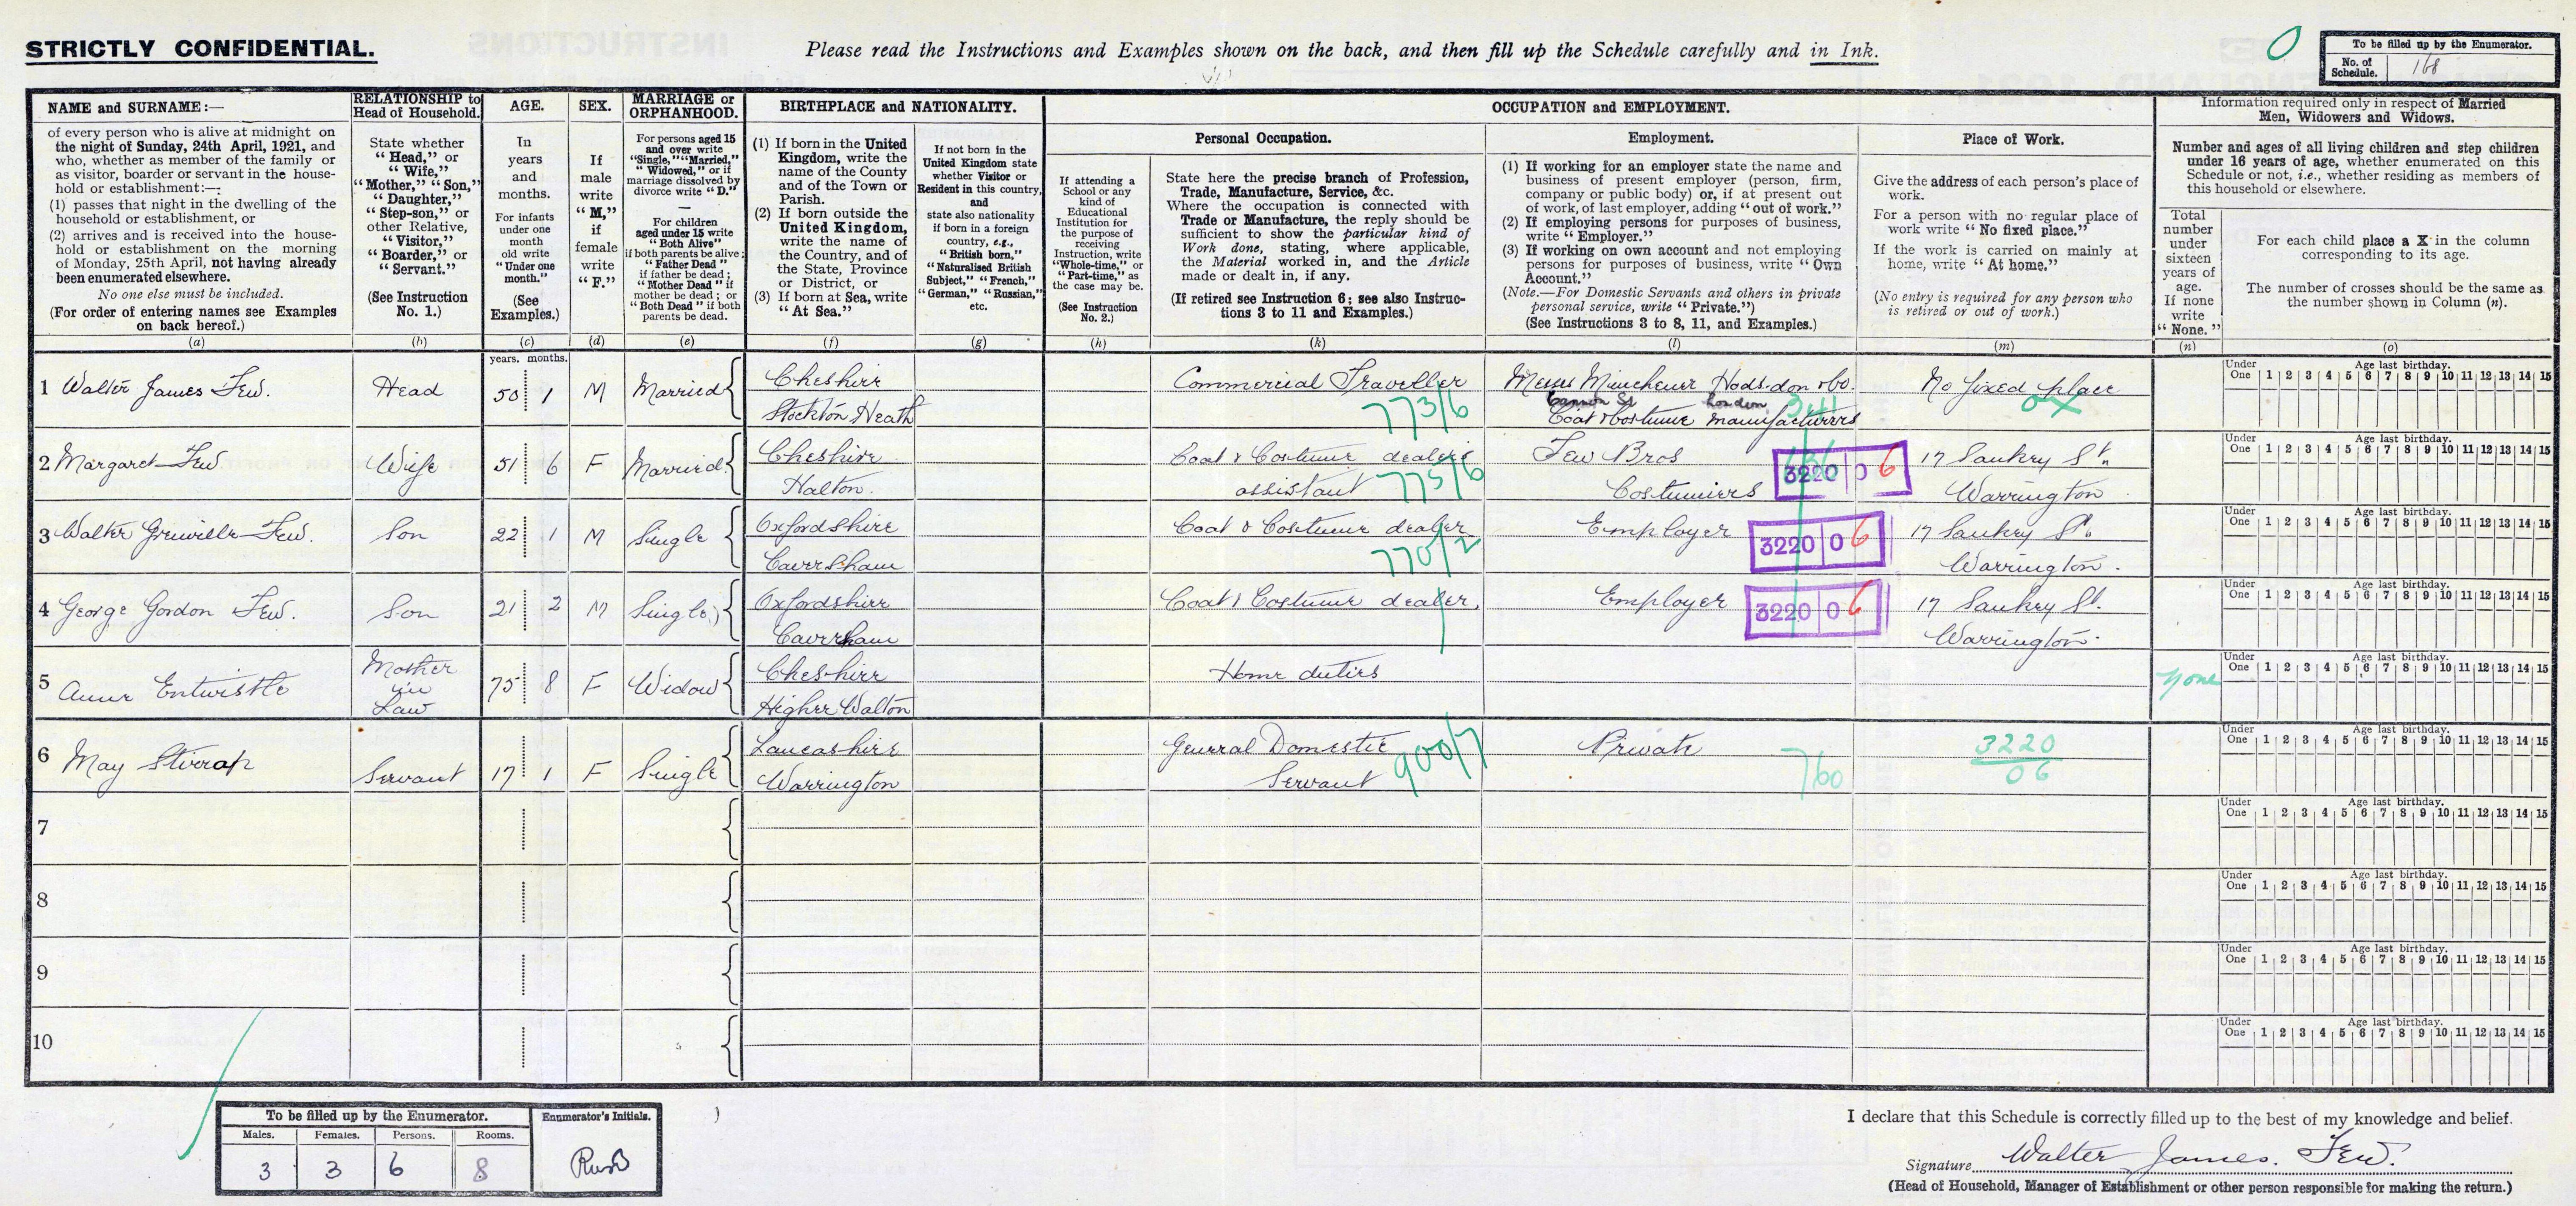 STRICTLY CONFIDENTIAL.
Please read the Instructions and Examples shown on the back, and then fill up the Schedule carefully and in Ink.
0
To be filled up by the Enumerator.
No. of Schedule. 168
NAME and SURNAME:—
of every person who is alive at midnight on
the night of Sunday, 24th April, 1921, and
who, whether as member of the family or
as visitor, boarder or servant in the house-
hold or establishment:—
(1) passes that night in the dwelling of the
household or establishment, or
(2) arrives and is received into the house-
hold or establishment on the morning
of Monday, 25th April, not having already
been enumerated elsewhere.
No one else must be included.
(For order of entering names see Examples
on back hereof.)
(a)
RELATIONSHIP to
Head of Household.
State whether
"Head," or
"Wife,"
"Mother," "Son,"
"Daughter,"
"Step-son," or
other Relative,
"Visitor,"
"Boarder," or
"Servant."
(See Instruction
No. 1.)
(b)
AGE.
In
years
and
months.
For infants
under one
month
old write
"Under one
month."
(See
Examples.)
(c)
SEX.
If
male
write
"M,"
if
female
write
"F."
(d)
MARRIAGE or
ORPHANHOOD.
For persons aged 15
and over write
"Single," "Married,"
"Widowed," or if
marriage dissolved by
divorce write "D."
For children
aged under 15 write
"Both Alive"
if both parents be alive;
"Father Dead"
if father be dead;
"Mother Dead" if
mother be dead; or
"Both Dead" if both
parents be dead.
(e)
BIRTHPLACE and NATIONALITY.
(1) If born in the United
Kingdom, write the
name of the County
and of the Town or
Parish.
(2) If born outside the
United Kingdom,
write the name of
the Country, and of
the State, Province
or District, or
(3) If born at Sea, write
"At Sea."
(f)
If not born in the
United Kingdom state
whether Visitor or
Resident in this country,
and
state also nationality
if born in a foreign
country, e.g.,
"British born,"
"Naturalised British
Subject," "French,"
"German," "Russian,"
etc.
(g)
OCCUPATION and EMPLOYMENT.
If attending a
School or any
kind of
Educational
Institution for
the purpose of
receiving
Instruction, write
"Whole-time," or
"Part-time," as
the case may be.
(See Instruction
No. 2.)
(h)
Personal Occupation.
State here the precise branch of Profession,
Trade, Manufacture, Service, &c.
Where the occupation is connected with
Trade or Manufacture, the reply should be
sufficient to show the particular kind of
Work done, stating, where applicable,
the Material worked in, and the Article
made or dealt in, if any.
(If retired see Instruction 6; see also Instruc-
tions 3 to 11 and Examples.)
(k)
Employment.
(1) If working for an employer state the name and
business of present employer (person, firm,
company or public body) or, if at present out
of work, of last employer, adding "out of work."
(2) If employing persons for purposes of business,
write "Employer."
(3) If working on own account and not employing
persons for purposes of business, write "Own
Account."
(Note.—For Domestic Servants and others in private
personal service, write "Private.")
(See Instructions 3 to 8, 11, and Examples.)
(l)
Place of Work.
Give the address of each person's place of
work.
For a person with no regular place of
work write "No fixed place."
If the work is carried on mainly at
home, write "At home."
(No entry is required for any person who
is retired or out of work.)
(m)
Information required only in respect of Married
Men, Widowers and Widows.
Number and ages of all living children and step children
under 16 years of age, whether enumerated on this
Schedule or not, i.e., whether residing as members of
this household or elsewhere.
Total
number
under
sixteen
years of
age.
If none
write
"None."
(n)
For each child place a X in the column
corresponding to its age.
The number of crosses should be the same as
the number shown in Column (n).
(o)
years. months.
1 Walter James Few. Head 50 1 M Married Cheshire
Stockton Heath
Commercial Traveller
773/6
Messrs Minchener Hodsdon & Co.
Cannon St London
341
Coat & Costume manufacturers
No fixed place
Under One 1 2 3 4 5 6 7 8 9 10 11 12 13 14 15
Age last birthday.
2 Margaret Few Wife 51 6 F Married Cheshire
Halton.
Coat & Costume dealers
assistant 775/6
Few Bros
Costumiers
3220 06
17 Sankey St.
Warrington
Under One 1 2 3 4 5 6 7 8 9 10 11 12 13 14 15
Age last birthday.
3 Walter Grenville Few. Son 22 1 M Single Oxfordshire
Caversham
Coat & Costume dealer
770/2
Employer
3220 06
17 Sankey St.
Warrington.
Under One 1 2 3 4 5 6 7 8 9 10 11 12 13 14 15
Age last birthday.
4 George Gordon Few. Son 21 2 M Single Oxfordshire
Caversham
Coat & Costume dealer,
Employer
3220 06
17 Sankey St.
Warrington.
Under One 1 2 3 4 5 6 7 8 9 10 11 12 13 14 15
Age last birthday.
5 Anne Entwistle Mother in Law 75 8 F Widow Cheshire
Higher Walton
Home duties
None
Under One 1 2 3 4 5 6 7 8 9 10 11 12 13 14 15
Age last birthday.
6 May Stirrap Servant 17 1 F Single Lancashire
Warrington
General Domestic
Servant 900/7
Private
760
3220
06
Under One 1 2 3 4 5 6 7 8 9 10 11 12 13 14 15
Age last birthday.
7
Under One 1 2 3 4 5 6 7 8 9 10 11 12 13 14 15
Age last birthday.
8
Under One 1 2 3 4 5 6 7 8 9 10 11 12 13 14 15
Age last birthday.
9
Under One 1 2 3 4 5 6 7 8 9 10 11 12 13 14 15
Age last birthday.
10
Under One 1 2 3 4 5 6 7 8 9 10 11 12 13 14 15
Age last birthday.
To be filled up by the Enumerator.
Males. Females. Persons. Rooms.
3 3 6 8
Enumerator's Initials.
I declare that this Schedule is correctly filled up to the best of my knowledge and belief.
Signature Walter James. Few.
(Head of Household, Manager of Establishment or other person responsible for making the return.)